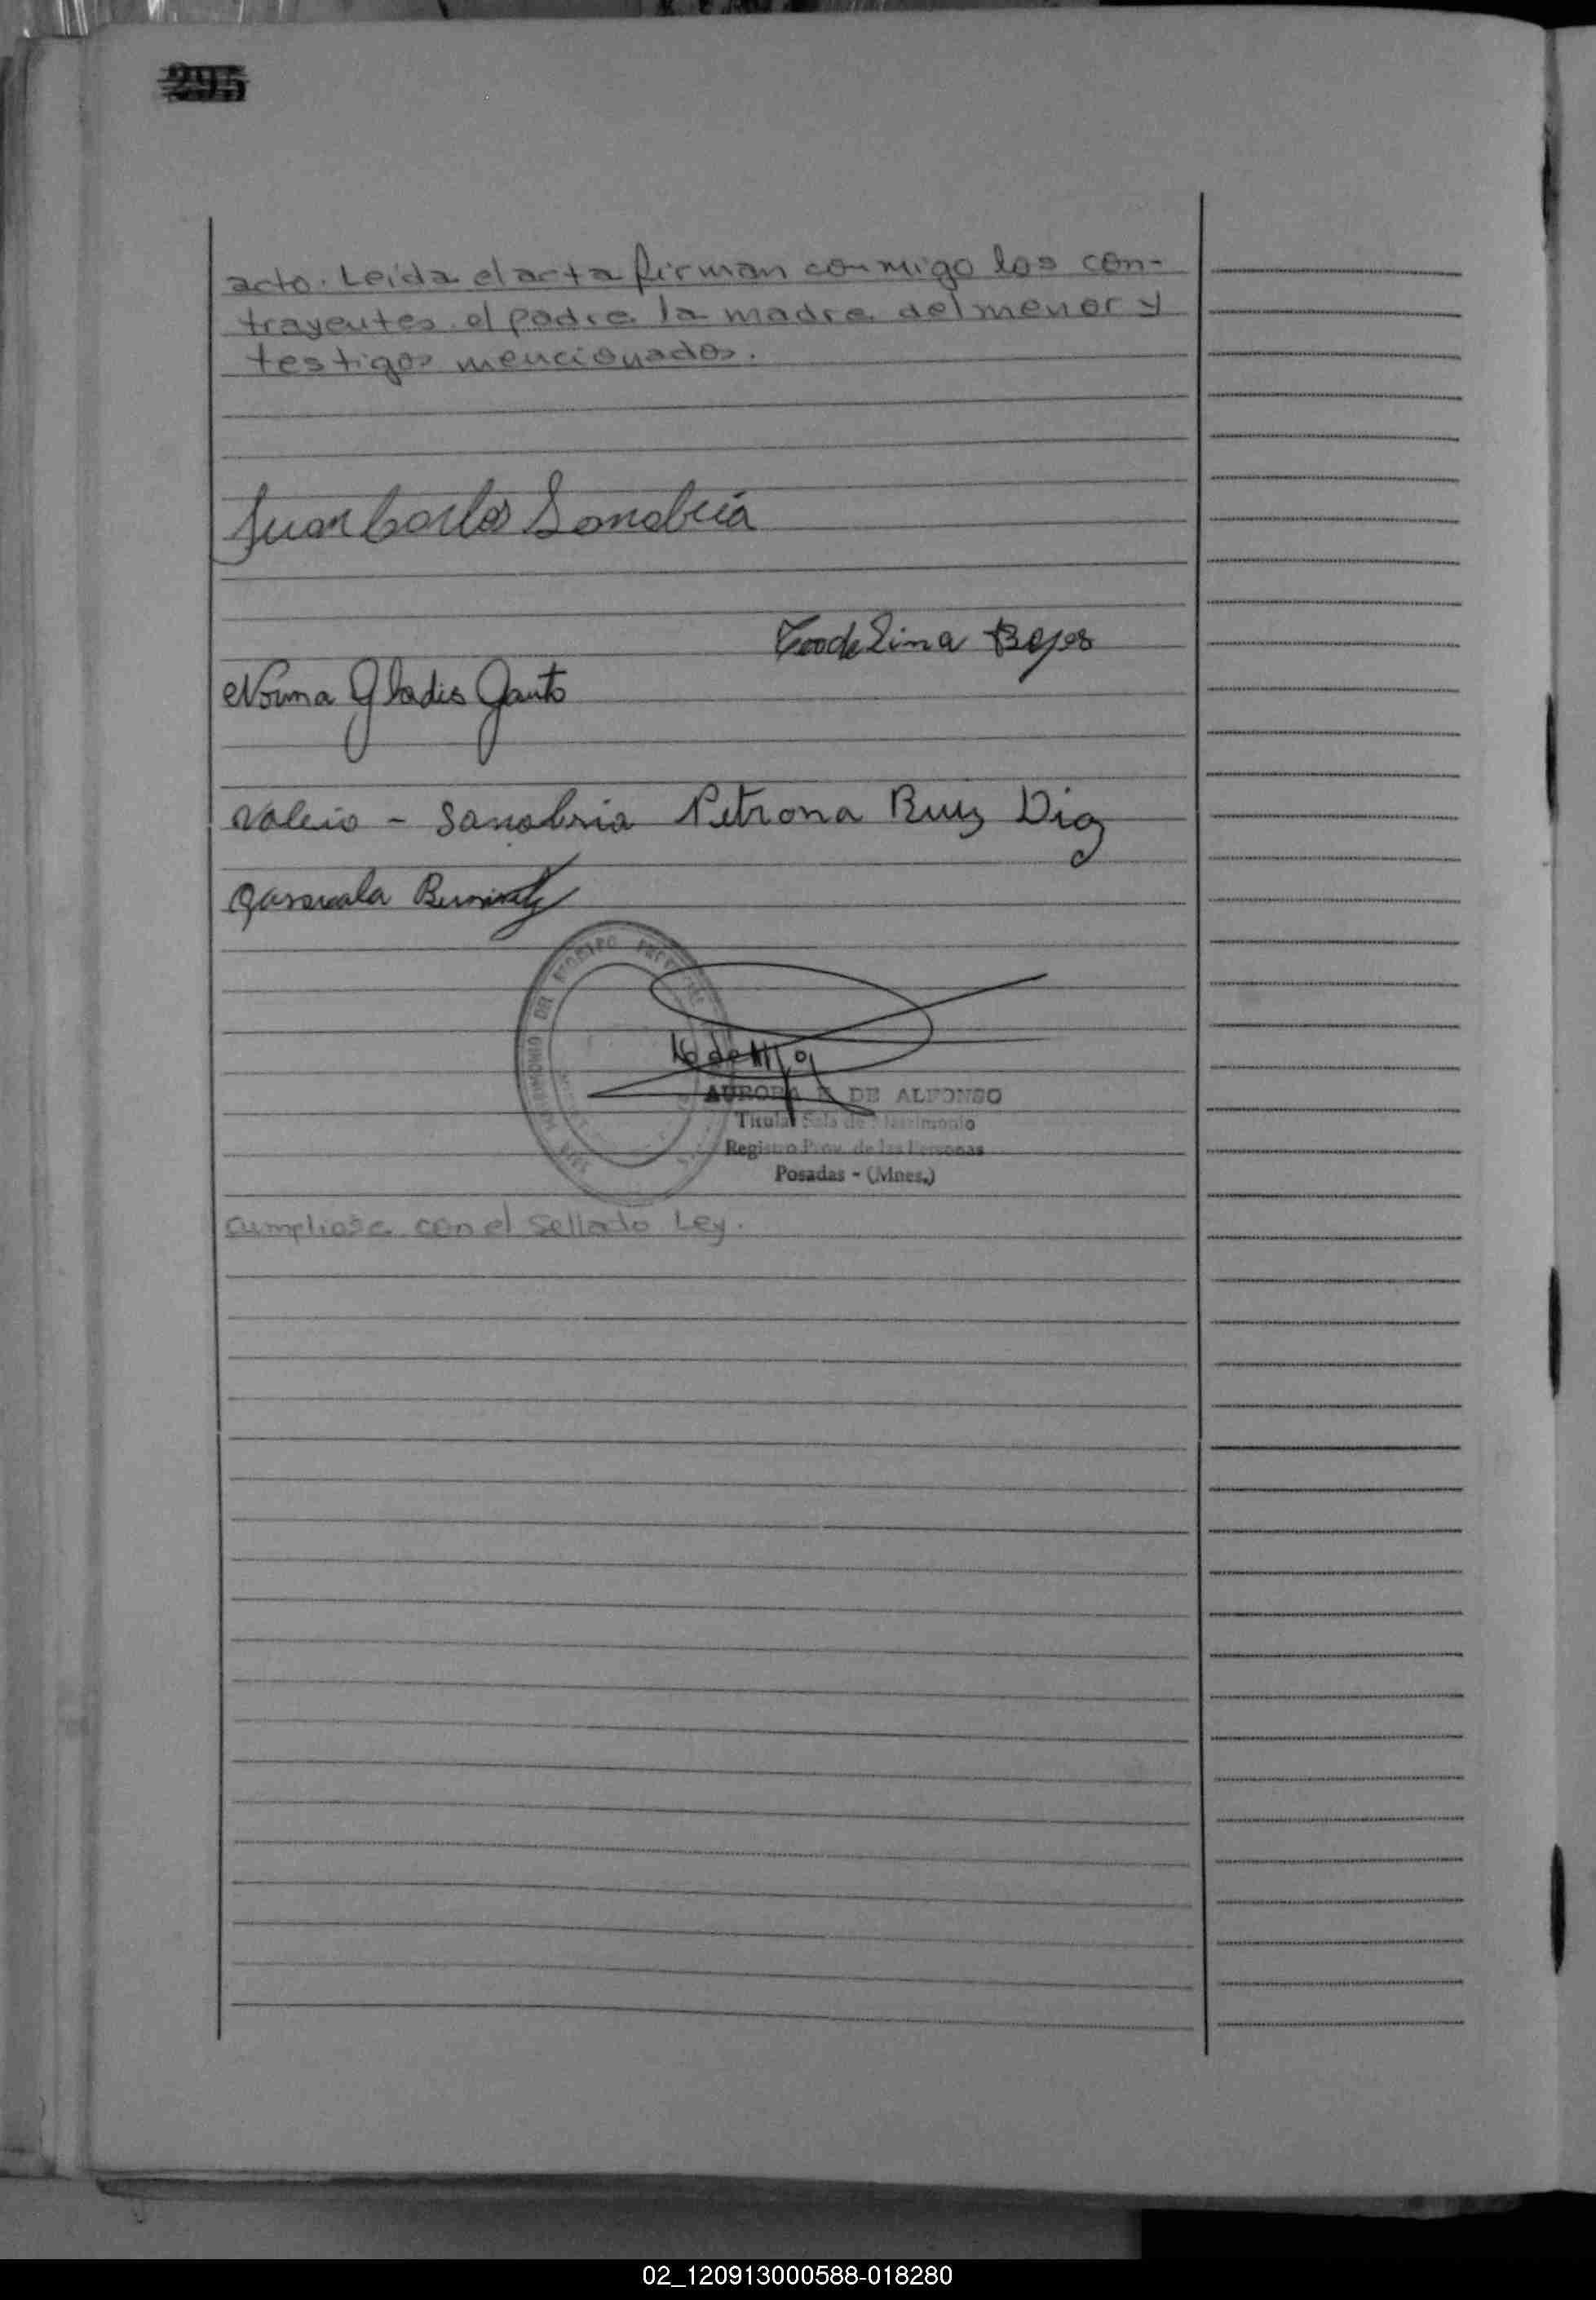 295
acto. Leída el acta firman conmigo los con-
trayentes el padre la madre del menor y
testigos mencionados.
Juan Carlos Sanabria
Teodelina
Norma Gladis
Sanabria Petrona Ruiz Diaz
MATRIMONIO DEL REGISTRO PROVINCIAL
AURORA DE ALFONSO
Titular Sala de Matrimonio
Registro Prov. de las Personas
Posadas - (Mnes.)
Cumpliose con el Sellado Ley.
02_120913000588-018280